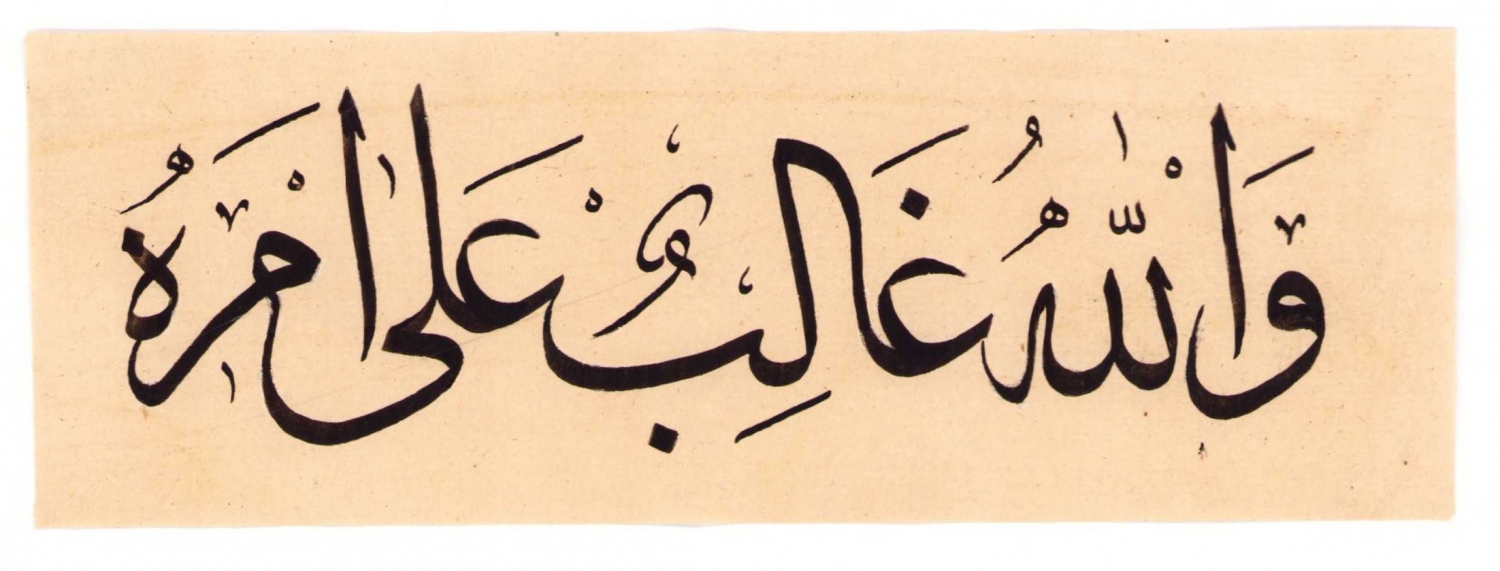 وَاللّٰهُ غَالِبٌ عَلٰى اَمْرِهُ